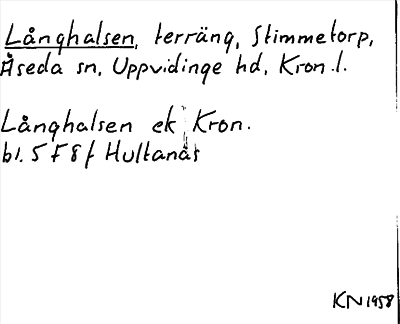 Långhalsen, terräng, Stimmetorp,
Åseda sn, Uppvidinge hd, Kron.l.
Långhalsen ek Kron.
bl. 5 F 8 f Hultanäs
KN 1958